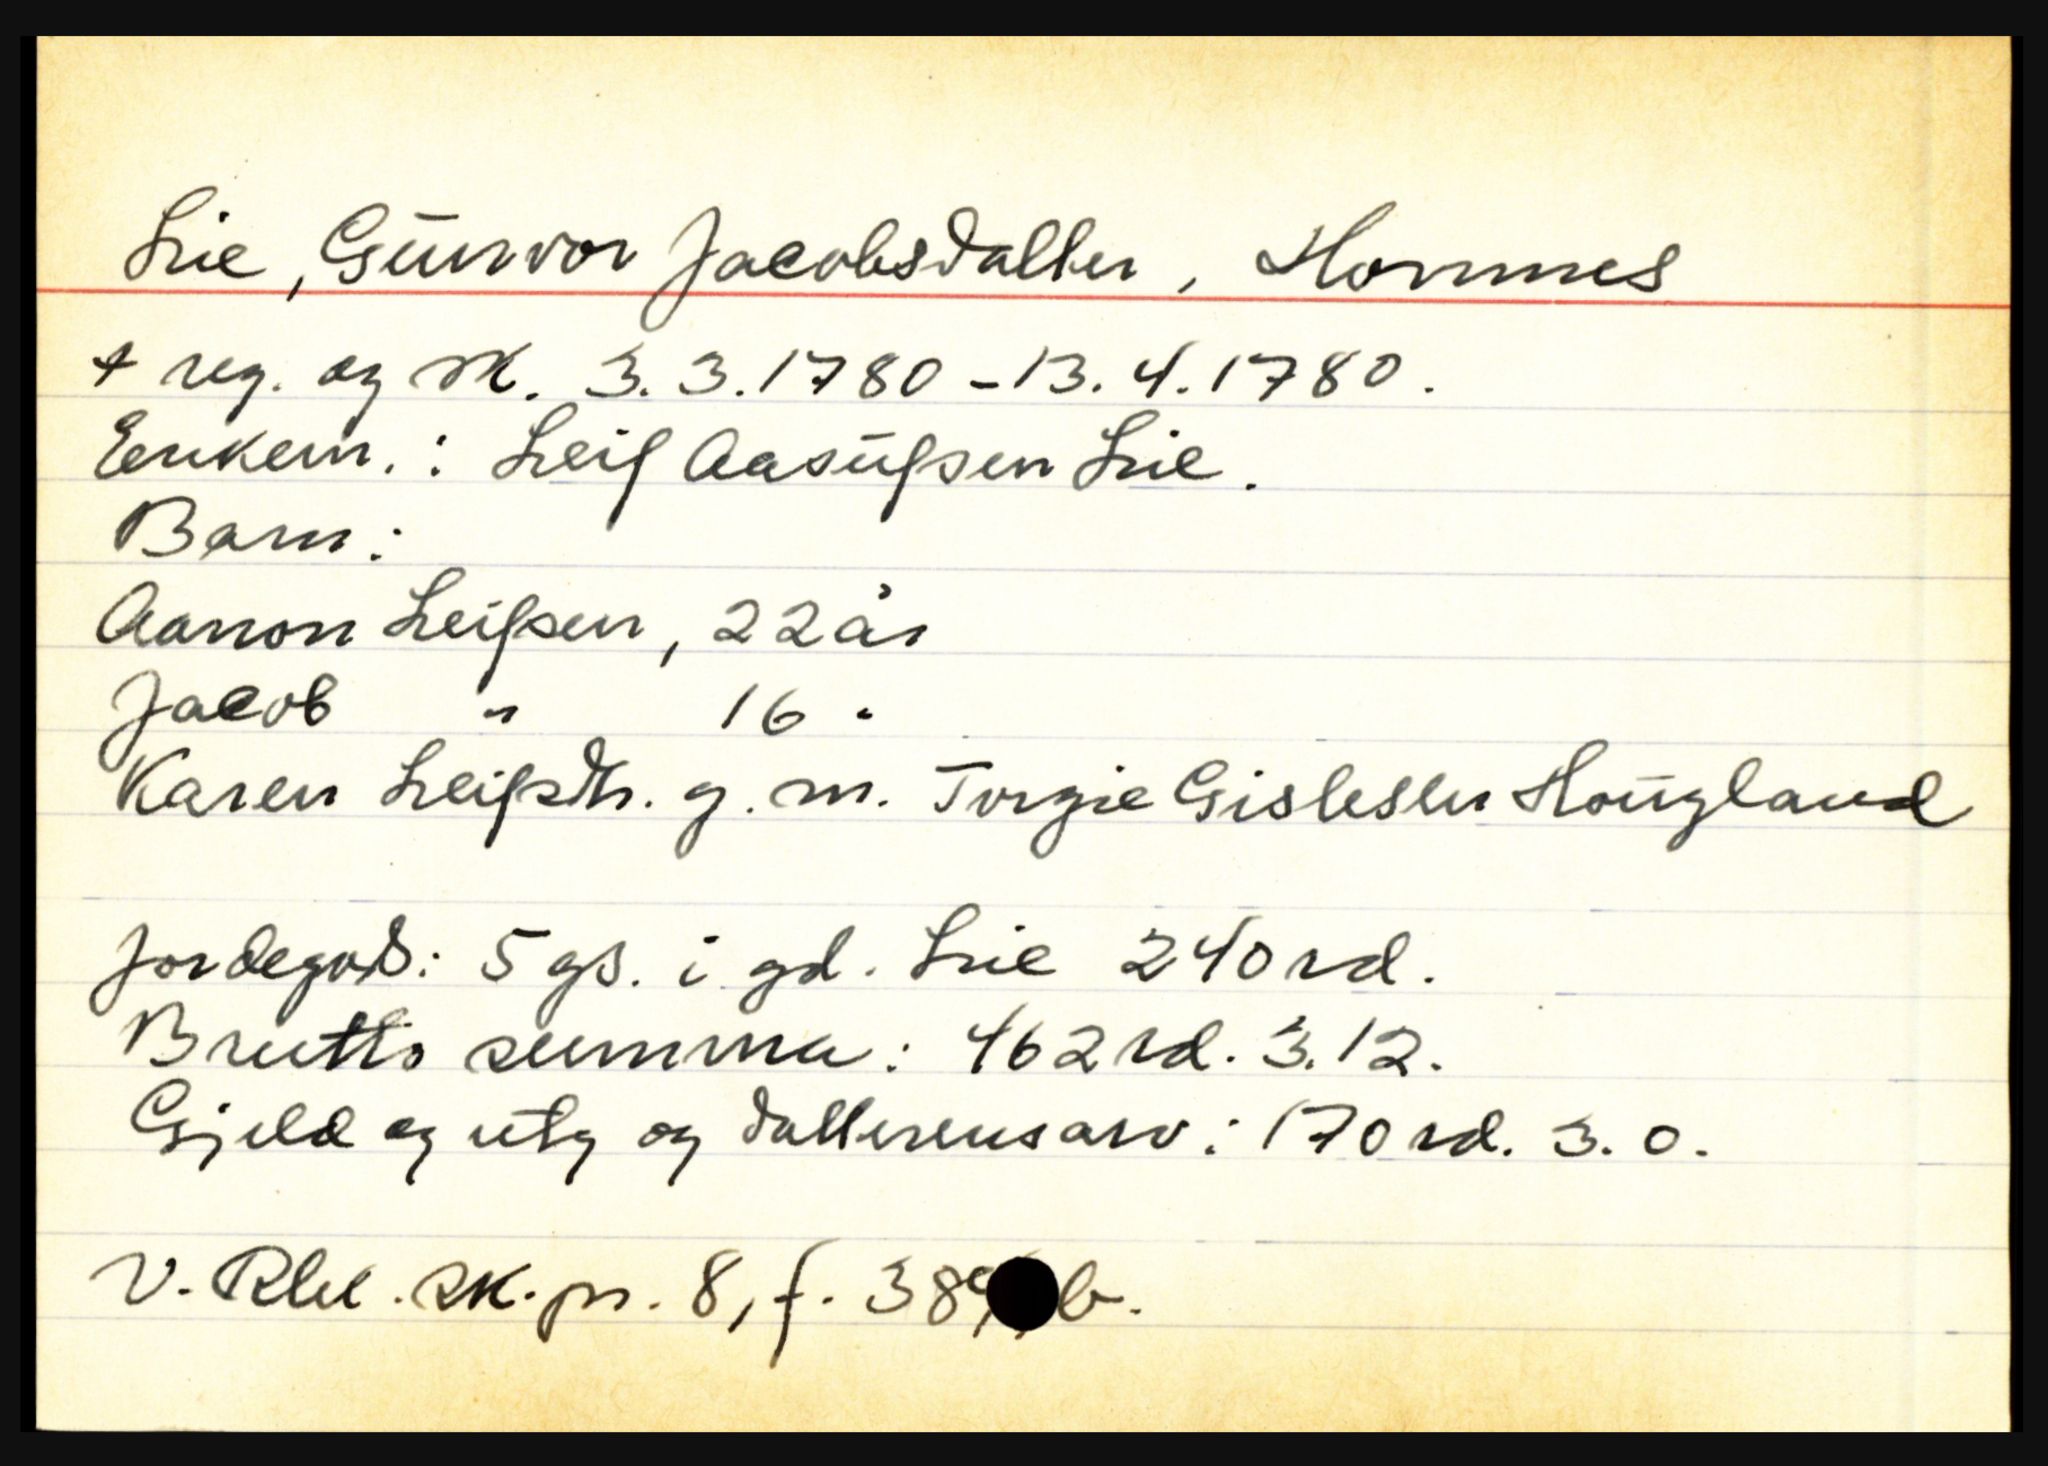 Lie, Gūnvor Jacobsdatter, Hommes
+ reg. og sk. 3.3.1780 - 13.4.1780.
Enkem.: Leif Aasūlfsen Lie.
Barn:
Aanon Leifsen, 22 år
Jacob " 16 "
Karen Leifsdtr. g. m. Torgie Gislesen Hoūgland
Jordegods: 5 gs. i gd. Lie 240 rd.
Brutto summa: 462 rd. 3.12.
Gjeld og utg og datterens arv: 170 rd. 3. 0.
V. Rbl. sk. pr. 8, f. 389 b.